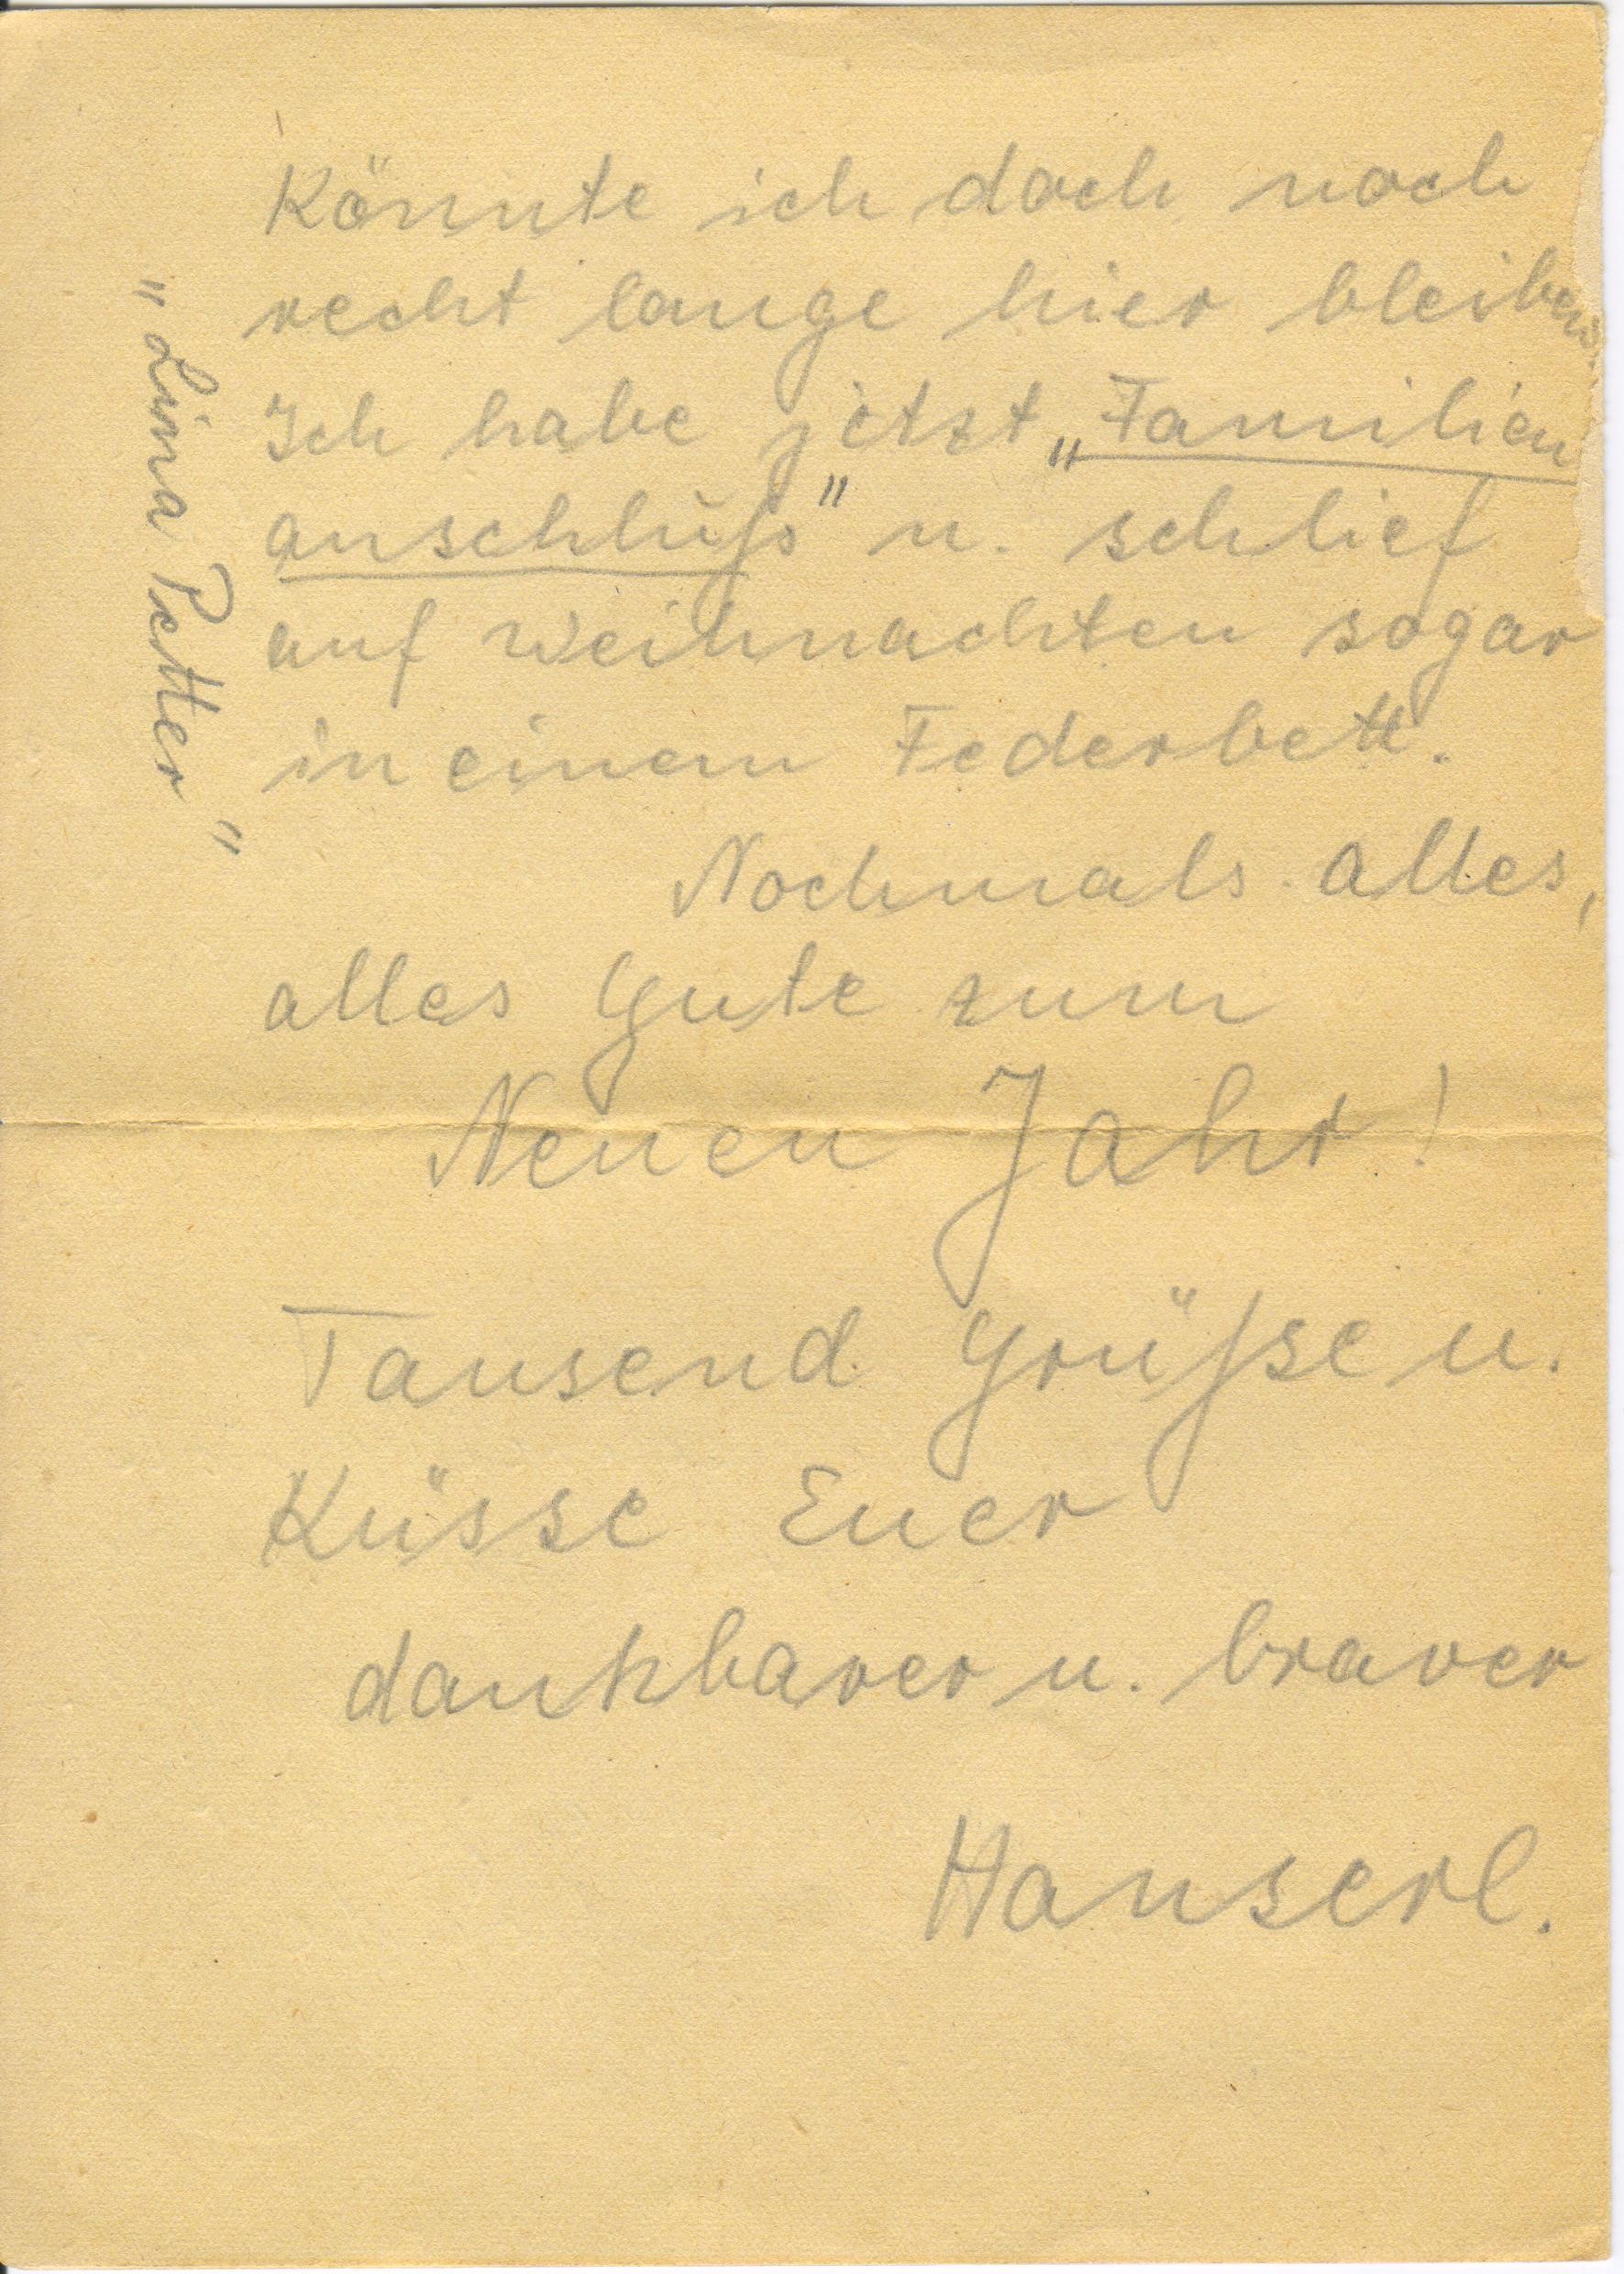 Könnte ich doch noch
recht lange hier bleiben.
Ich habe jetzt „Familien
anschluß" u. schlief
auf Weihnachten sogar
in einem Federbett.
Nochmals alles,
alles Gute zum
Neuen Jahr!
Tausend Grüße u.
Küsse Euer
dankbarer u. braver
Hanserl.
"Lina Petter"